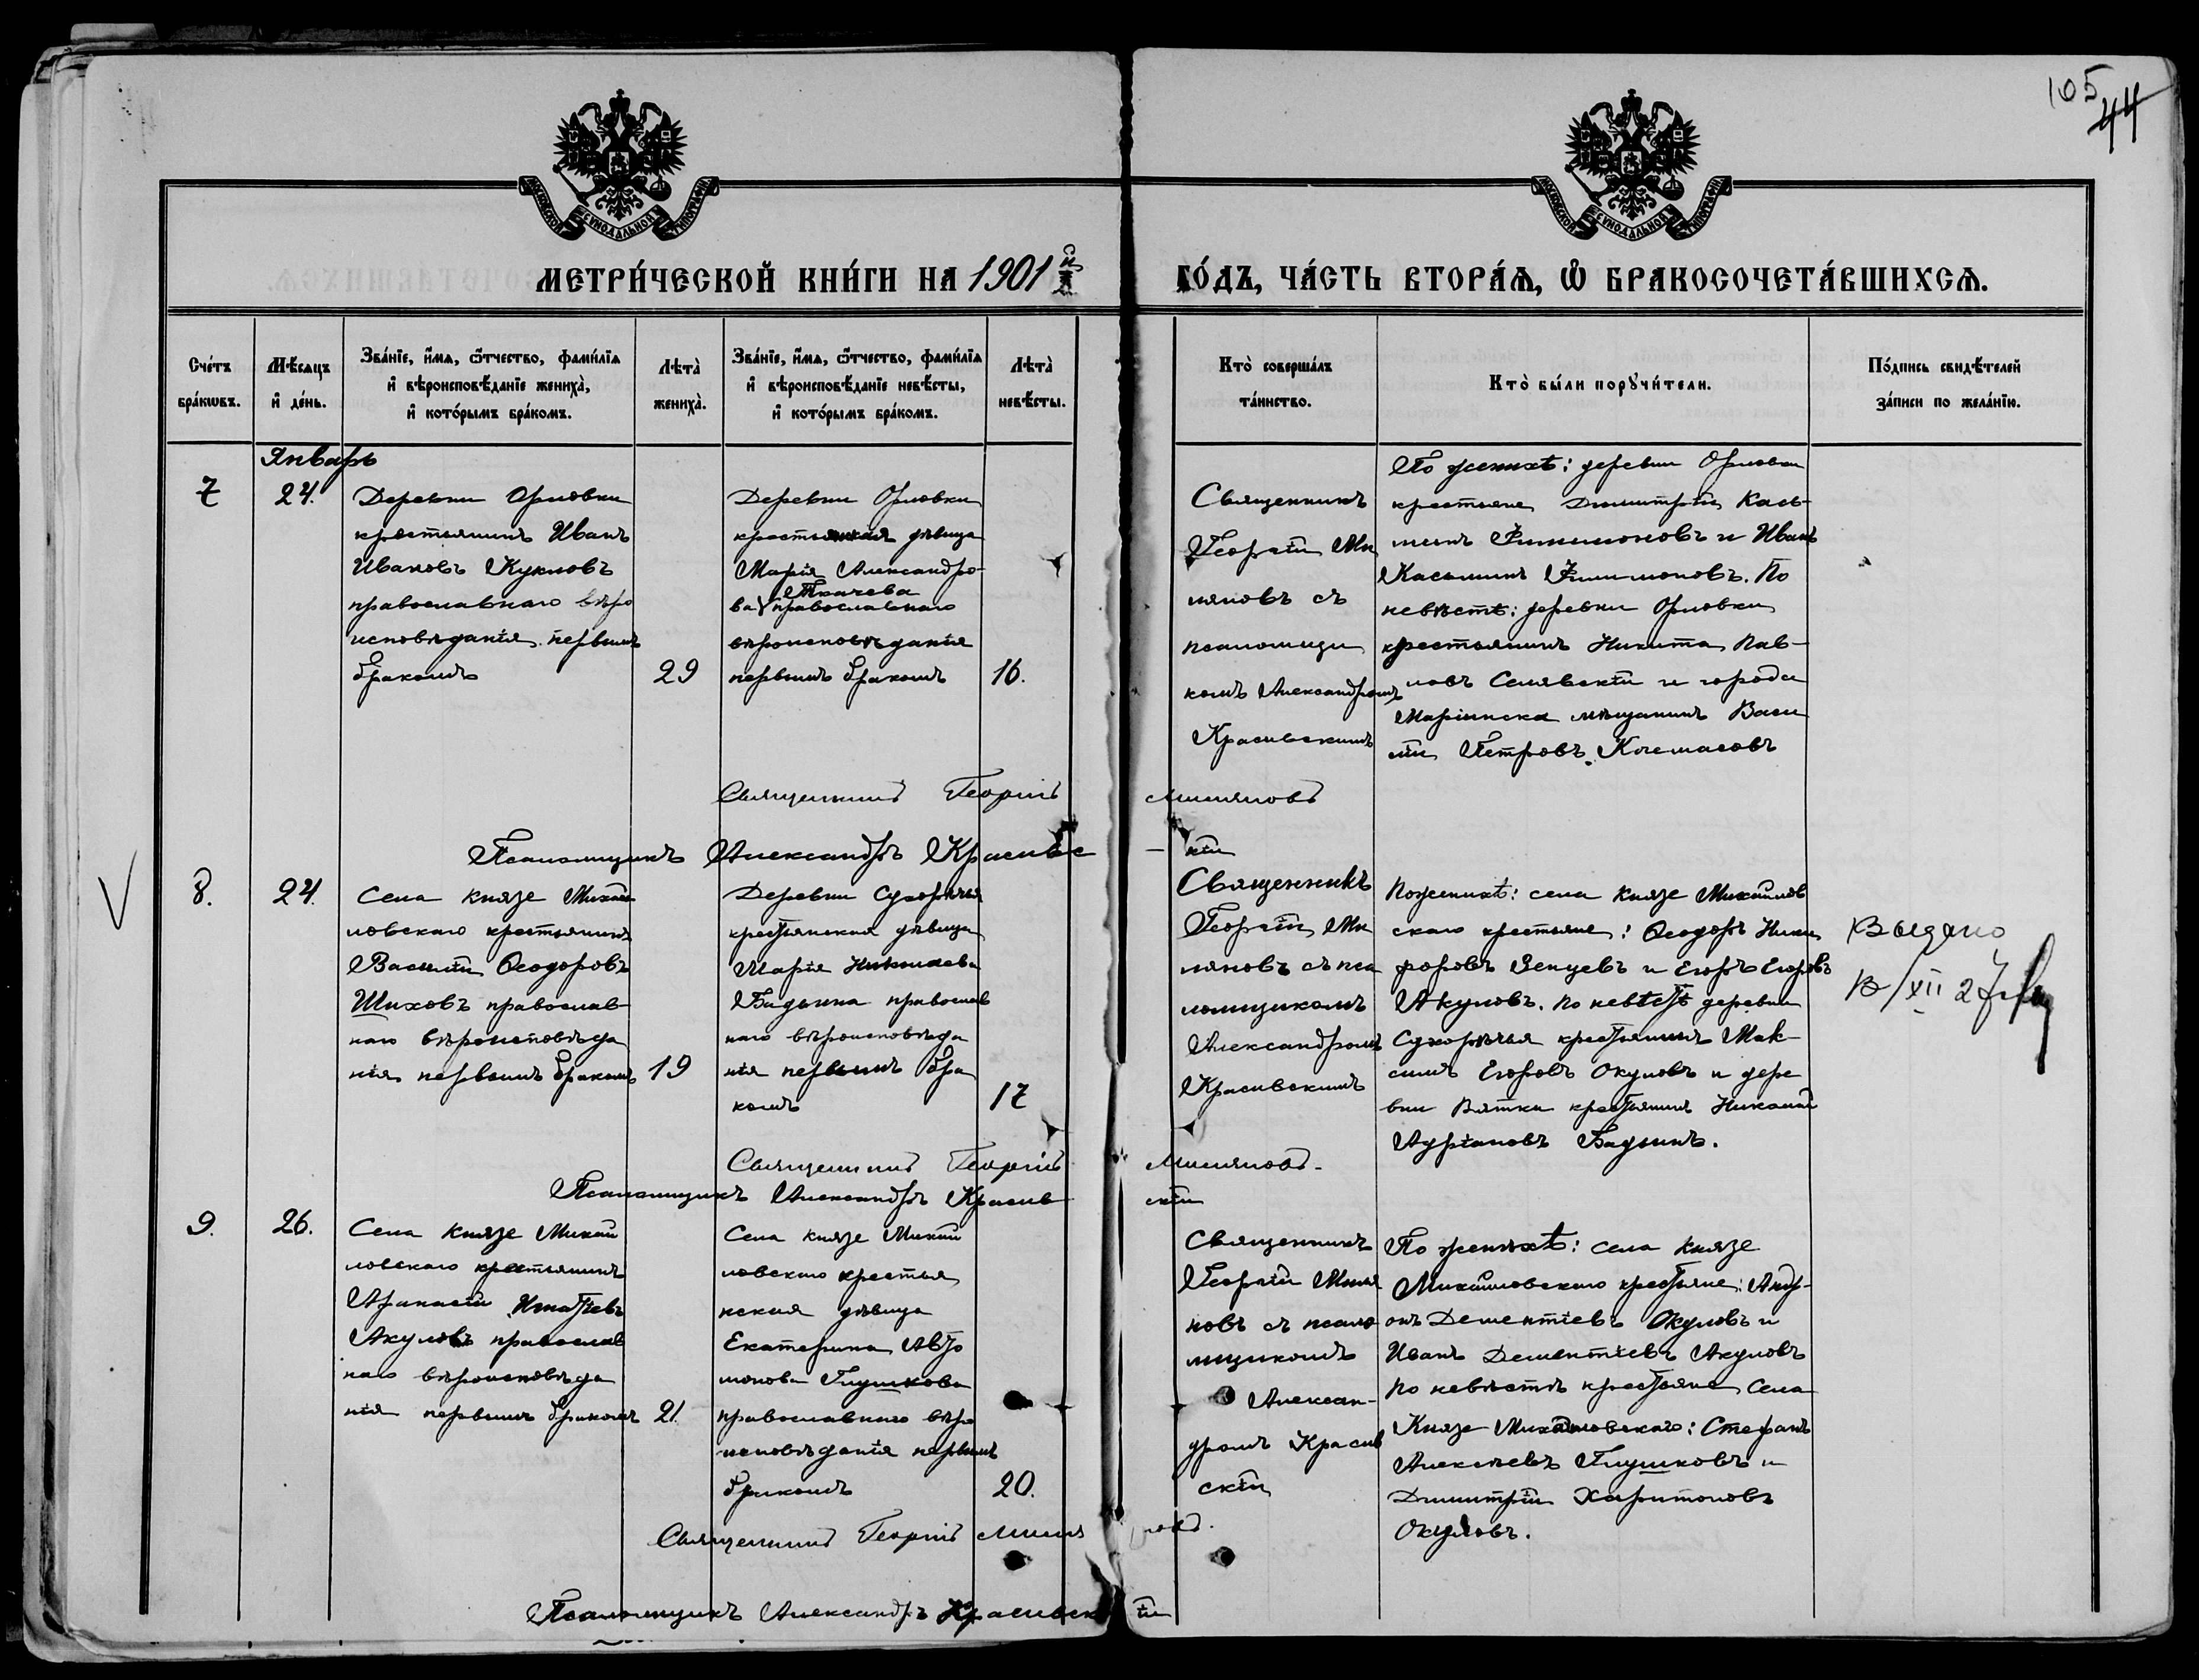 105
44
МОСКОВСКОЙ СѴНОДАЛЬНОЙ ТИПОГРАФІИ
МОСКОВСКОЙ СѴНОДАЛЬНОЙ ТИПОГРАФІИ
МЕТРИ́ЧЕСКОЙ КНИ́ГИ НА 1901й ГО́ДЪ, ЧА́СТЬ ВТОРА́Ѧ, Ѽ БРАКОСОЧЕТА́ВШИХСѦ.
Сче́тъ
бра́кѡвъ.
Мѣ́сѧцъ
и҆ де́нь.
Зва́нїе, и҆́мѧ, ѻ҆́тчество, фами́лїѧ
и҆ вѣроисповѣ́данїе жениха̀,
и҆ кото́рымъ бра́комъ.
Лѣта̀
жениха̀.
Зва́нїе, и҆́мѧ, ѻ҆́тчество, фами́лїѧ
и҆ вѣроисповѣ́данїе невѣ́сты,
и҆ кото́рымъ бра́комъ.
Лѣта̀
невѣ́сты.
Кто̀ соверша́лъ
та́инство.
Кто̀ бы́ли порꙋчи́тели.
По́дпись свидѣ́телей
за́писи по жела́нїю.
Январь
7
24.
Деревни Орловки
крестьянинъ Иванъ
Ивановъ Кукловъ
православнаго вѣро
исповѣданія первымъ
бракомъ
29
Деревни Орловки
крестьянская дѣвица
Марія Александро-
Ткачева
ва православнаго
вѣроисповѣданія
первымъ бракомъ
16.
Священникъ
Георгій Ми
ляновъ съ
псаломщи
комъ Александромъ
Красивскимъ
По женихѣ: деревни Орловки
крестьяне Димитрій Кась-
минъ Филимоновъ и Иванъ
Касьминъ Филимоновъ. По
невѣстѣ: деревни Орловки
крестьянинъ Никита Пав-
ловъ Селявскій и города
Маріинска мѣщанинъ Васи
лій Петровъ
Священникъ Георгій Миляновъ
Псаломщикъ Александръ Красивс-кій
8.
24.
Села Князе Михай
ловскаго крестьянинъ
Василій Ѳеодоровъ
Шиховъ православ
наго вѣроисповѣда
нія первымъ бракомъ
19
Деревни Сухорѣчья
крестьянская дѣвица
Марія Николаева
Бадьина православ
наго вѣроисповѣда
нія первымъ бра
комъ
17
Священникъ
Георгій Ми
ляновъ съ пса
ломщикомъ
Александромъ
Красивскимъ
По женихѣ: села Князе Михайлов
скаго крестьяне: Ѳеодоръ Ники
форовъ Зенцевъ и Егоръ Егоровъ
Акуловъ. По невѣстѣ деревни
Сухорѣчья крестьянинъ Мак-
симъ Егоровъ Окуловъ и дере
вни Вятки крестьянинъ Николай
Адріановъ Бадьинъ.
Выдано
Священникъ Георгій Миляновъ.
Псаломщикъ Александръ Красивскій
9.
26.
Села Князе Михай
ловскаго крестьянинъ
Афанасій Игнатіевъ
Акуловъ православ
наго вѣроисповѣда
нія первымъ бракомъ
21.
Села Князе Михай
ловскаго крестья
нская дѣвица
Екатерина Авто
монова Глушкова
православнаго вѣро
исповѣданія первымъ
бракомъ
20.
Священникъ
Георгій Миля
новъ съ псало
мщикомъ
Алексан-
дромъ Красив
скій
По женихѣ: села Князе
Михайловскаго крестьяне: Анdр-
онъ Дементіевъ Окуловъ и
Иванъ Дементіевъ Акуловъ
По невѣстѣ крестьяне села
Князе Михайловскаго: Стефанъ
Алексѣевъ Глушковъ и
Димитрій Харитоновъ
Окуловъ.
Священникъ Георгій Миляновъ.
Псаломщикъ Александръ Красивскій